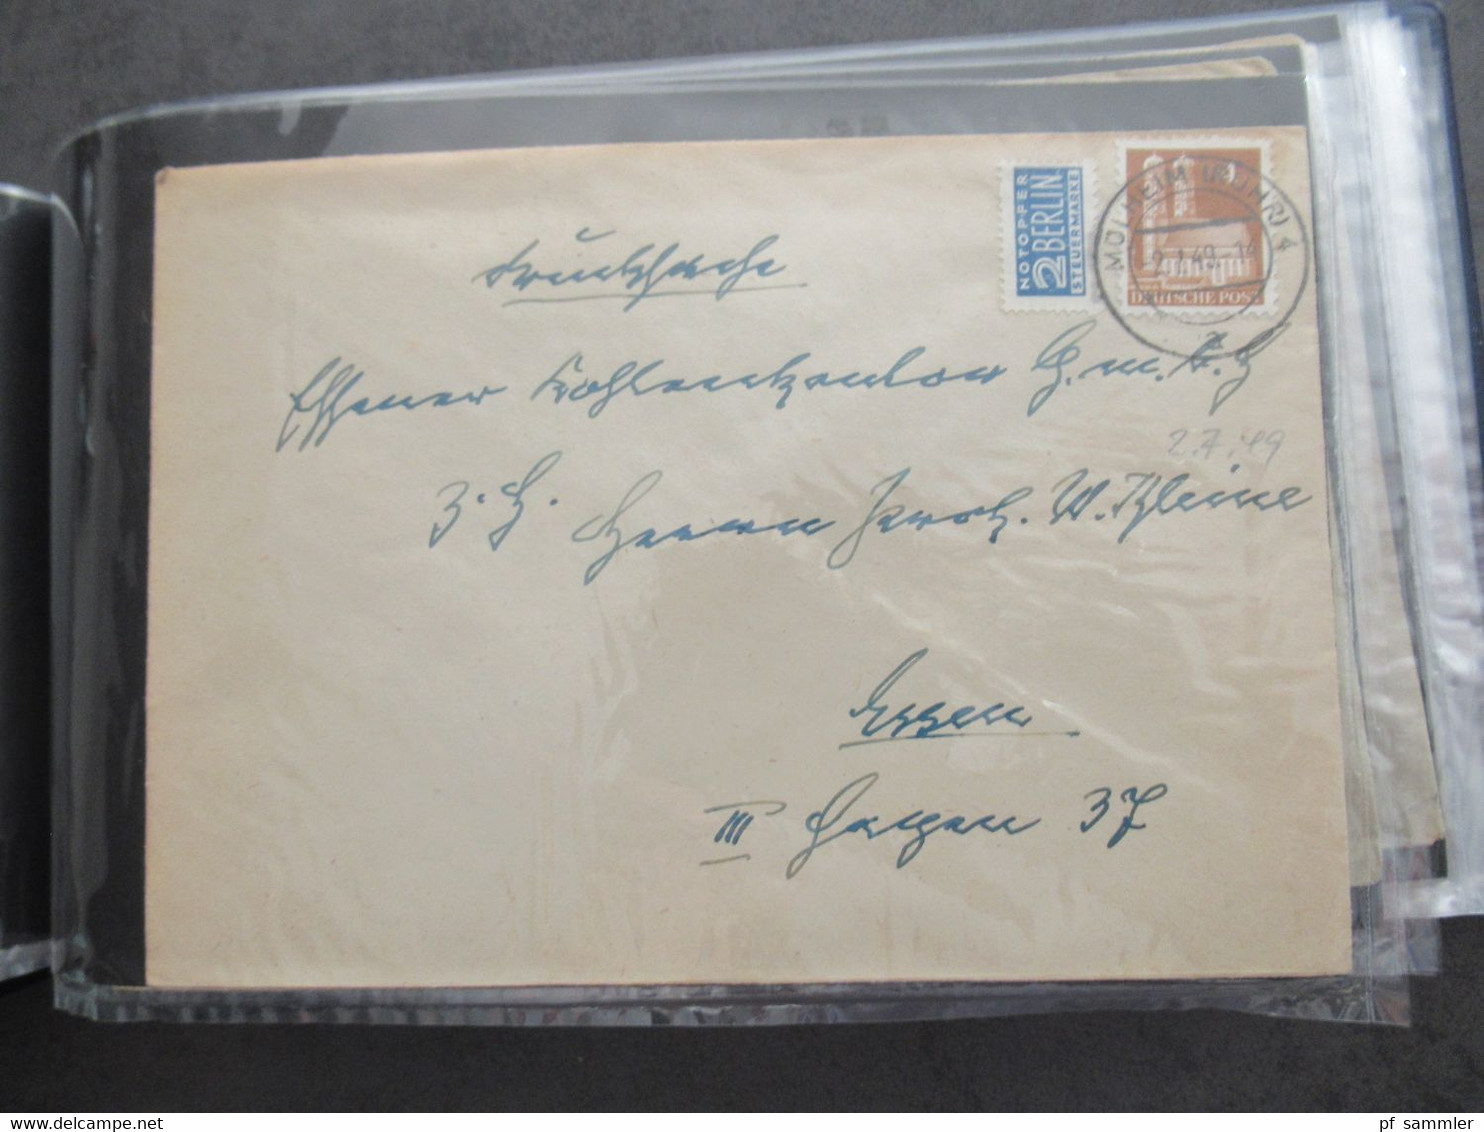 NOTOPFER
2 BERLIN
STEUERMARKE
DEUTSCHE POST
MÜLHEIM (RUHR) 4
49.-14
a
Drucksache
Essener Kohlenkontor G.m.b.H
2.7.49
z.H. Herrn Prok. W. Kleine
Essen
III Hagen 37
www.delcampe.net
pf sammler